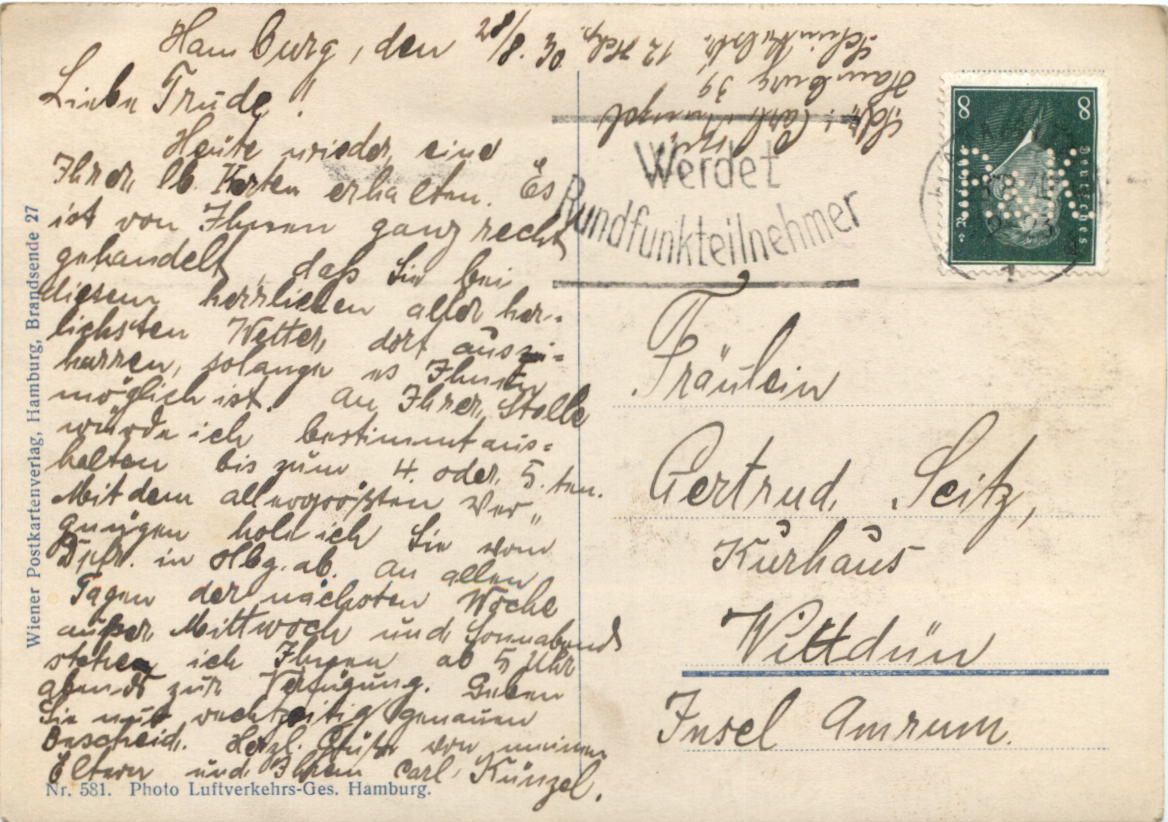 Hamburg, den 28/8. 30.
Liebe Trude!
Heute wieder eine
Ihrer lb. Karten erhalten. Es
ist von Ihnen ganz recht
gehandelt, daß Sie bei
diesem herrlichen aller her-
lichsten Wetter, dort auszu-
harren, solange es Ihnen
möglich ist. An Ihrer Stelle
würde ich bestimmt aus-
halten bis zum 4. oder 5. ten.
Mit dem allergrößten Ver-
gnügen hole ich Sie vom
Dpfr. in Hbg. ab. An allen
Tagen der nächsten Woche
außer Mittwoch und Sonnabend
stehen ich Ihnen ab 5 Uhr
abends zur Verfügung. Geben
Sie mir rechtzeitig genauen
Bescheid. Herzl. Grüße von meinen
Eltern und Ihrem Carl Künzel.
Abs.: Carl Künzel
Hamburg 39
12 Hchp.
Werdet
Rundfunkteilnehmer
8 8
Deutsches
Fräulein
Gertrud Seitz,
Kurhaus
Wittdün
Insel Amrum.
Wiener Postkartenverlag, Hamburg, Brandsende 27
Nr. 581. Photo Luftverkehrs-Ges. Hamburg.